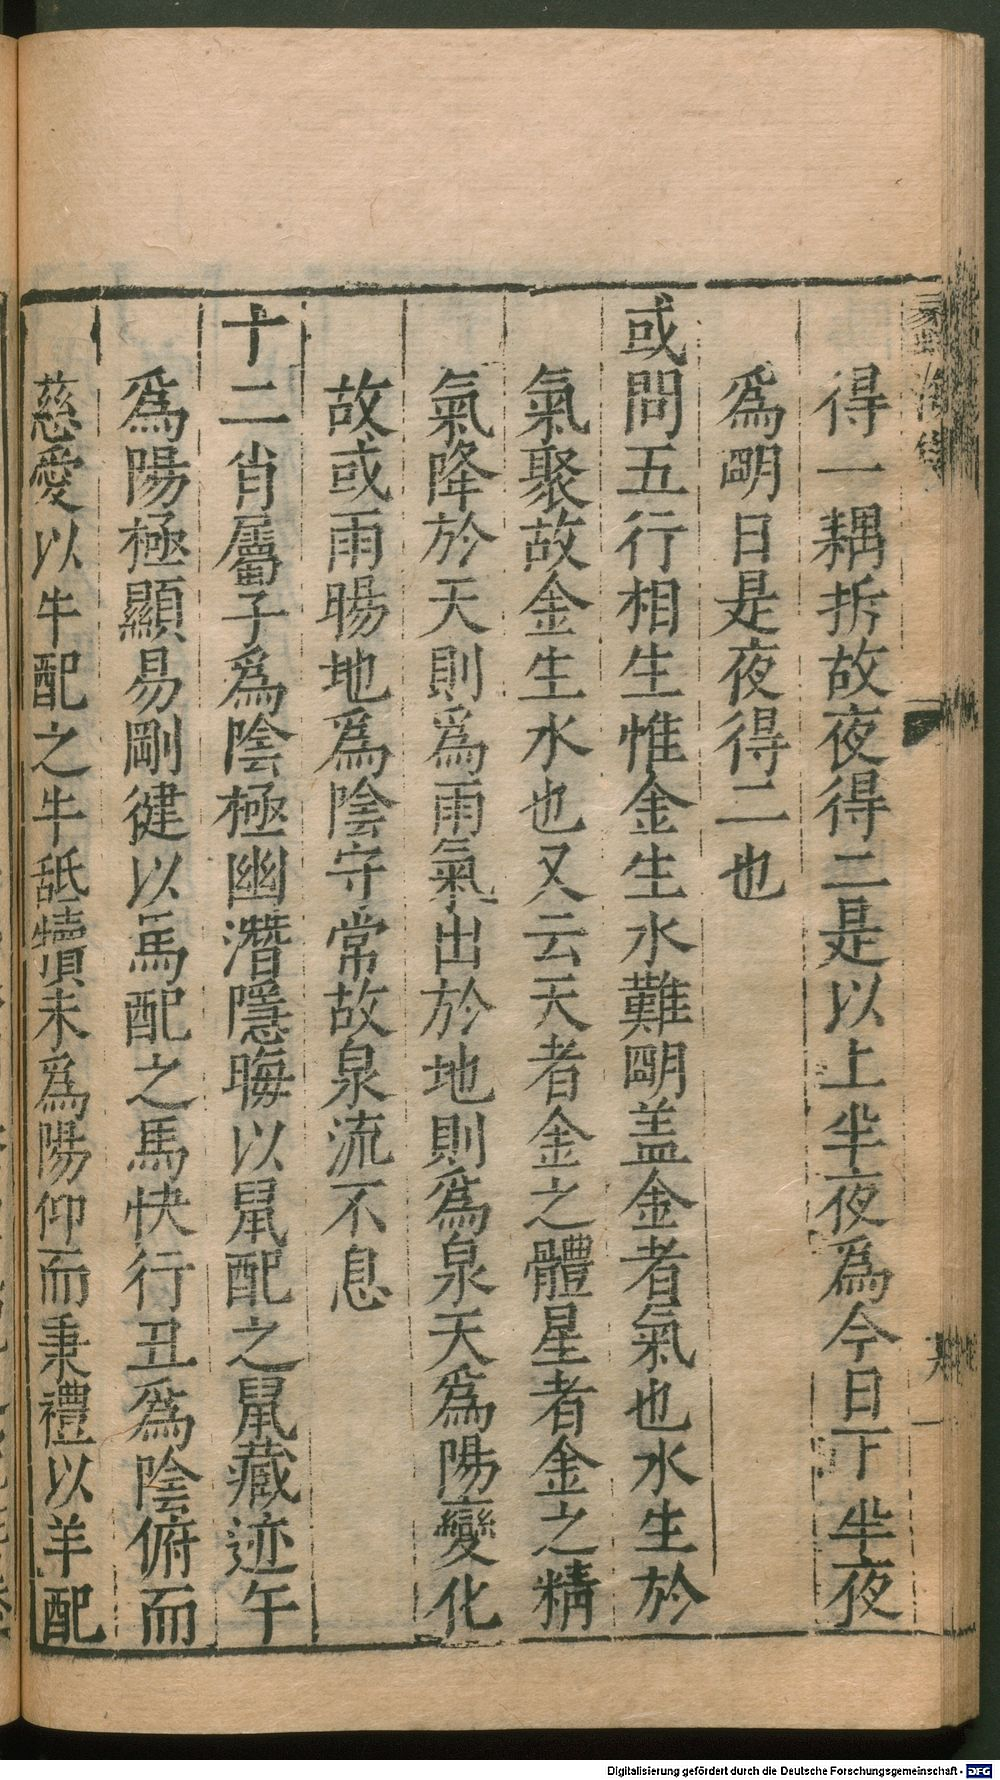 得一耦拆故夜得二是以上半夜爲今日下半夜
爲明日是夜得二也
或問五行相生惟金生水難明盖金者氣也水生於
氣聚故金生水也又云天者金之體星者金之精
氣降於天則爲雨氣出於地則爲泉天爲陽變化
故或雨暘地爲陰守常故泉流不息
十二肖屬子爲陰極幽潛隱晦以鼠配之鼠藏迹午
爲陽極顯易剛健以馬配之馬快行丑爲陰俯而
慈愛以牛配之牛舐犢未爲陽仰而秉禮以羊配
Digitalisierung gefördert durch die Deutsche Forschungsgemeinschaft - DFG